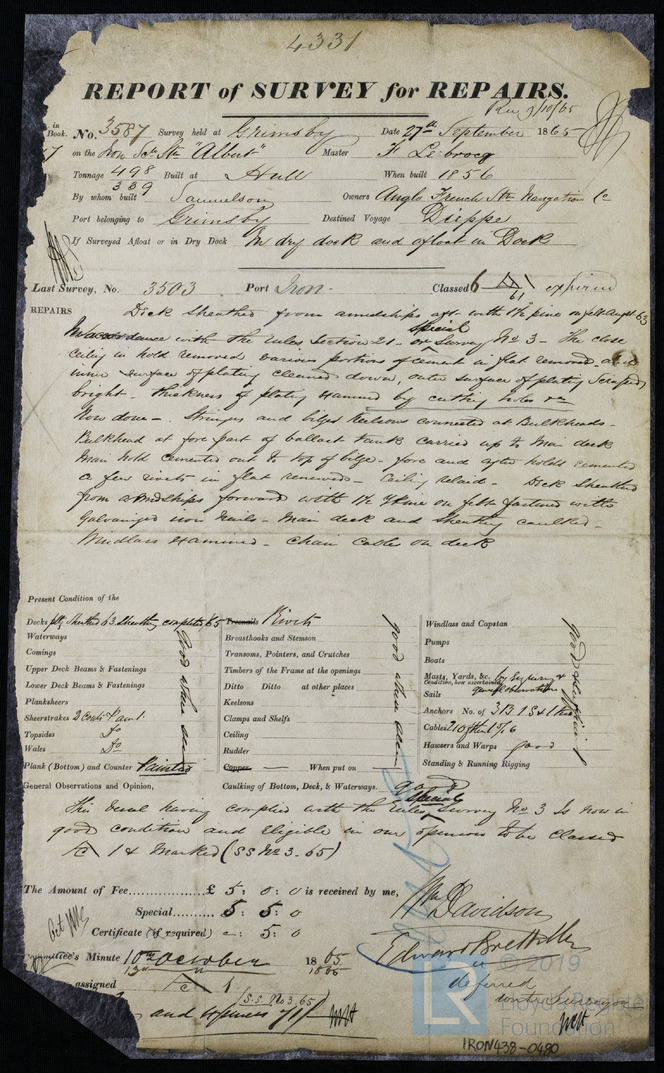 4331
REPORT of SURVEY for REPAIRS.
Rec 9/10/65
in Book. No. 3587 Survey held at Grimsby Date 27th September 1865
on the Iron Scr Str "Albert" Master F Lebrocq
Tonnage 498 339 Built at Hull When built 1856
By whom built Samuelson Owners Anglo French Stm Navigation Co
Port belonging to Grimsby Destined Voyage Dieppe
If Surveyed Afloat or in Dry Dock In dry dock and afloat in Dock
Last Survey, No. 3503 Port Iron. Classed 6 A 61 expired
REPAIRS Deck Sheathed from amidships aft with 1½ pine on felt Augst 63
In accordance with the rules Section 21 - or Special Survey No 3 - The close
ceiling in hold removed various portions of cement in flat removed and
inner surface of plating cleaned down, outer surface of plating scraped
bright. thickness of plating examined by cutting holes &c
Now done - Stringers and bilge Keelsons connected at Bulkheads.
Bulkhead at fore part of ballast tank carried up to Main deck
Main hold cemented out to top of bilge. fore and after holds cemented
a few rivets in flat renewed - Ceiling relaid - Deck Sheathed
from amidships forward with 1½ Pine on felt fastened with
Galvanized iron Nails - Main deck and Sheathing caulked -
Windlass examined - Chain Cables on deck
Present Condition of the
Decks Sheathed 63. Sheathing complete/65
Waterways
Comings
Upper Deck Beams & Fastenings
Lower Deck Beams & Fastenings
Planksheers
Sheerstrakes 2 Coats Paint
Topsides Do
Wales Do
Plank (Bottom) and Counter Painted
good where seen
Treenails Rivets
Breasthooks and Stemson
Transoms, Pointers, and Crutches
Timbers of the Frame at the openings
Ditto Ditto at other places
Keelsons
Clamps and Shelfs
Ceiling
Rudder
Copper — When put on
good where seen
Windlass and Capstan
Pumps
Boats
Masts, Yards, &c. Condition, how ascertained by enquiry & general observation
Sails
Anchors No. of 3 B 1 S & 1 K
Cables 210 fth 1 5/16
Hawsers and Warps good
Standing & Running Rigging
General Observations and Opinion, Caulking of Bottom, Deck, & Waterways. good
This Vessel having complied with the rules Special Survey No 3 Is now in
good condition and Eligible in our opinions to be Classed
A 1 & Marked (SS No 3. 65)
The Amount of Fee............... £ 5 : 0 : 0 is received by me,
Special......... 5 : 5 : 0
Certificate (if required) - : 5 : 0
Wm Davidson
Committee's Minute 10th October 1865
13th 1865
assigned A 1
(S.S. No 3, 65)
deferred
© 2019
LR
Lloyd's Register
Foundation
IRON438-0480